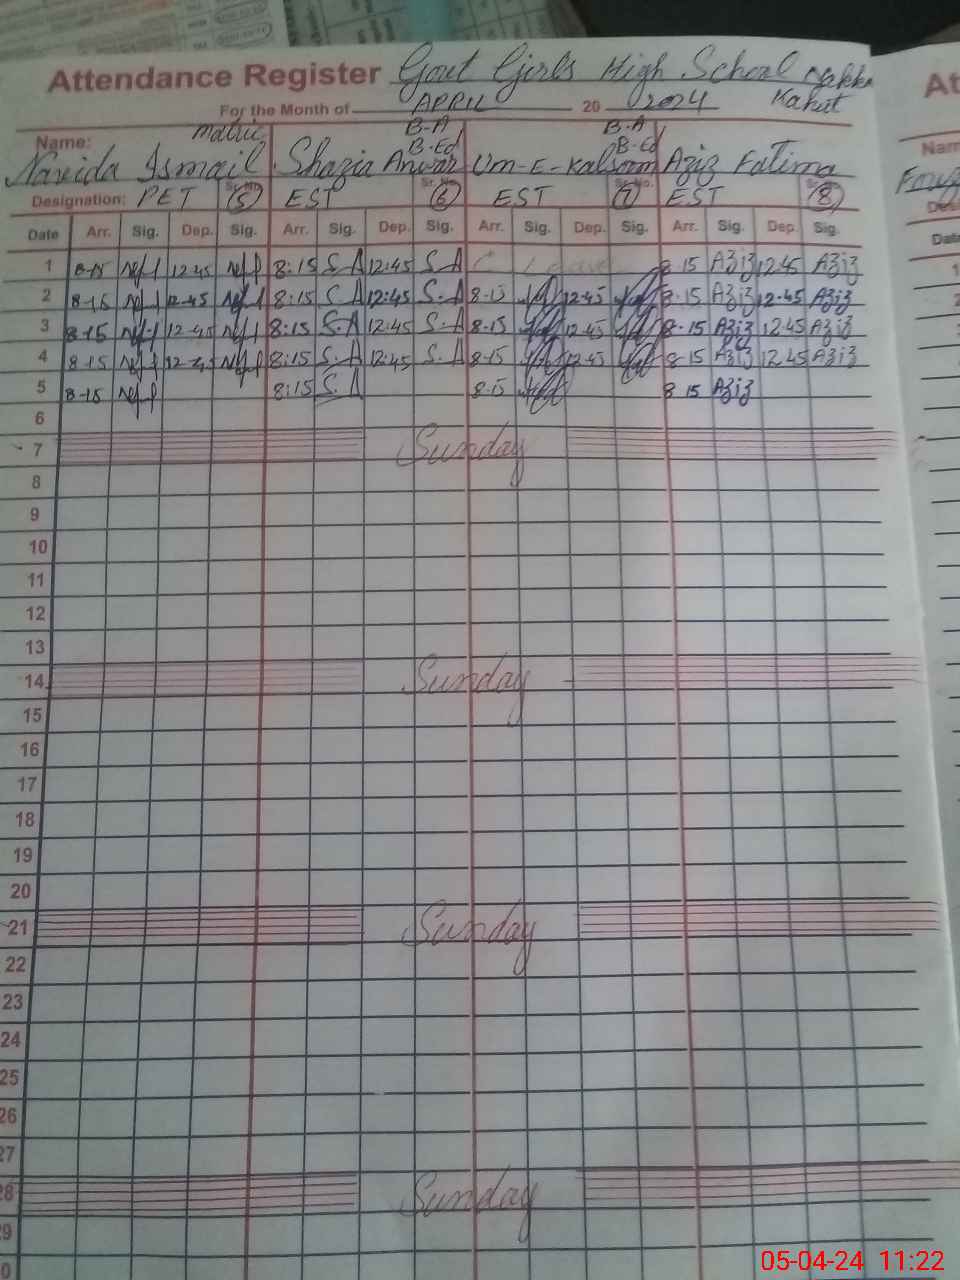 Attendance Register Govt Girls High School Nakka
For the Month of APRIL 20 2024 Kahut
Name: Matric B-A B-Ed B-A B-Ed
Navida Ismail Shazia Anwar Um-E-Kalsoom Aziz Fatima
Designation: PET Sr. No. 5 EST Sr. No. 6 EST Sr. No. 7 EST Sr. No. 8
Date Arr. Sig. Dep. Sig. Arr. Sig. Dep. Sig. Arr. Sig. Dep. Sig. Arr. Sig. Dep. Sig.
1 8-15 12-45 8:15 S.A 12:45 S.A C Leave 8-15 Aziz 12-45 Aziz
2 8-15 12-45 8:15 S.A 12:45 S.A 8-15 12-45 8-15 Aziz 12-45 Aziz
3 8-15 12-45 8:15 S.A 12:45 S.A 8-15 12-45 8-15 Aziz 12-45 Aziz
4 8-15 12-45 8:15 S.A 12:45 S.A 8-15 12-45 8-15 Aziz 12-45 Aziz
5 8-15 8:15 S.A 8-15 8-15 Aziz
6
7 Sunday
8
9
10
11
12
13
14 Sunday
15
16
17
18
19
20
21 Sunday
22
23
24
25
26
27
28 Sunday
29
05-04-24 11:22